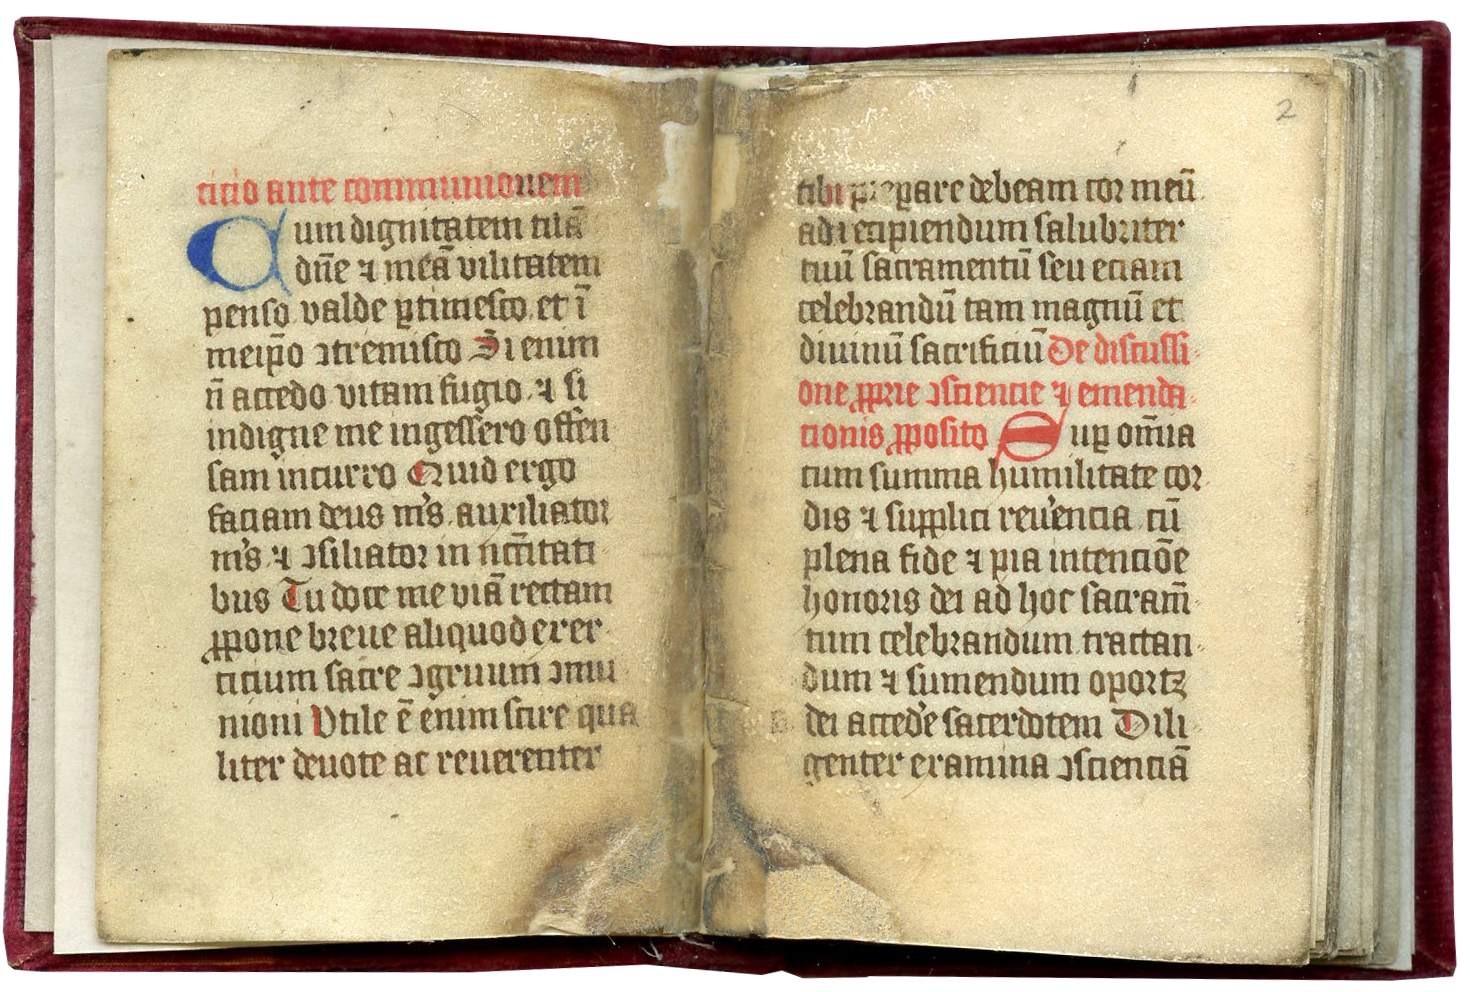 cicio ante communionem
Cum dignitatem tuā
dn̄e ⁊ meā vilitatem
penso valde ꝑtimesco et ī
meip̄o ↄtremisco Si enim
n̄ accedo vitam fugio ⁊ si
indigne me ingessero offen
sam incurro Quid ergo
faciam deus m's auxiliator
m's ⁊ ↄsiliator in nc̄c̄itati
bus Tu doce me viā rectam
ꝓpone breue aliquod exer
cicium sacre ↄgruum ↄmu
nioni Vtile ē enim scire qua
liter deuote ac reuerenter
2
tibi p̄eꝑare debeam cor meū
ad recipiendum salubriter
tuū sacramentū seu eciam
celebrandū tam magnū et
diuinū sacrificiū De discussi
one ꝓprie ↄsciencie ⁊ emenda
cionis ꝓposito Suꝑ om̄ia
cum summa humilitate cor
dis ⁊ supplici reu'encia cū
plena fide ⁊ pia intenciōe
honoris dei ad hoc sacram̄
tum celebrandum tractan
dum ⁊ sumendum oportꝫ
dei acced'e sacerdotem Dili
genter examina ↄscienciā